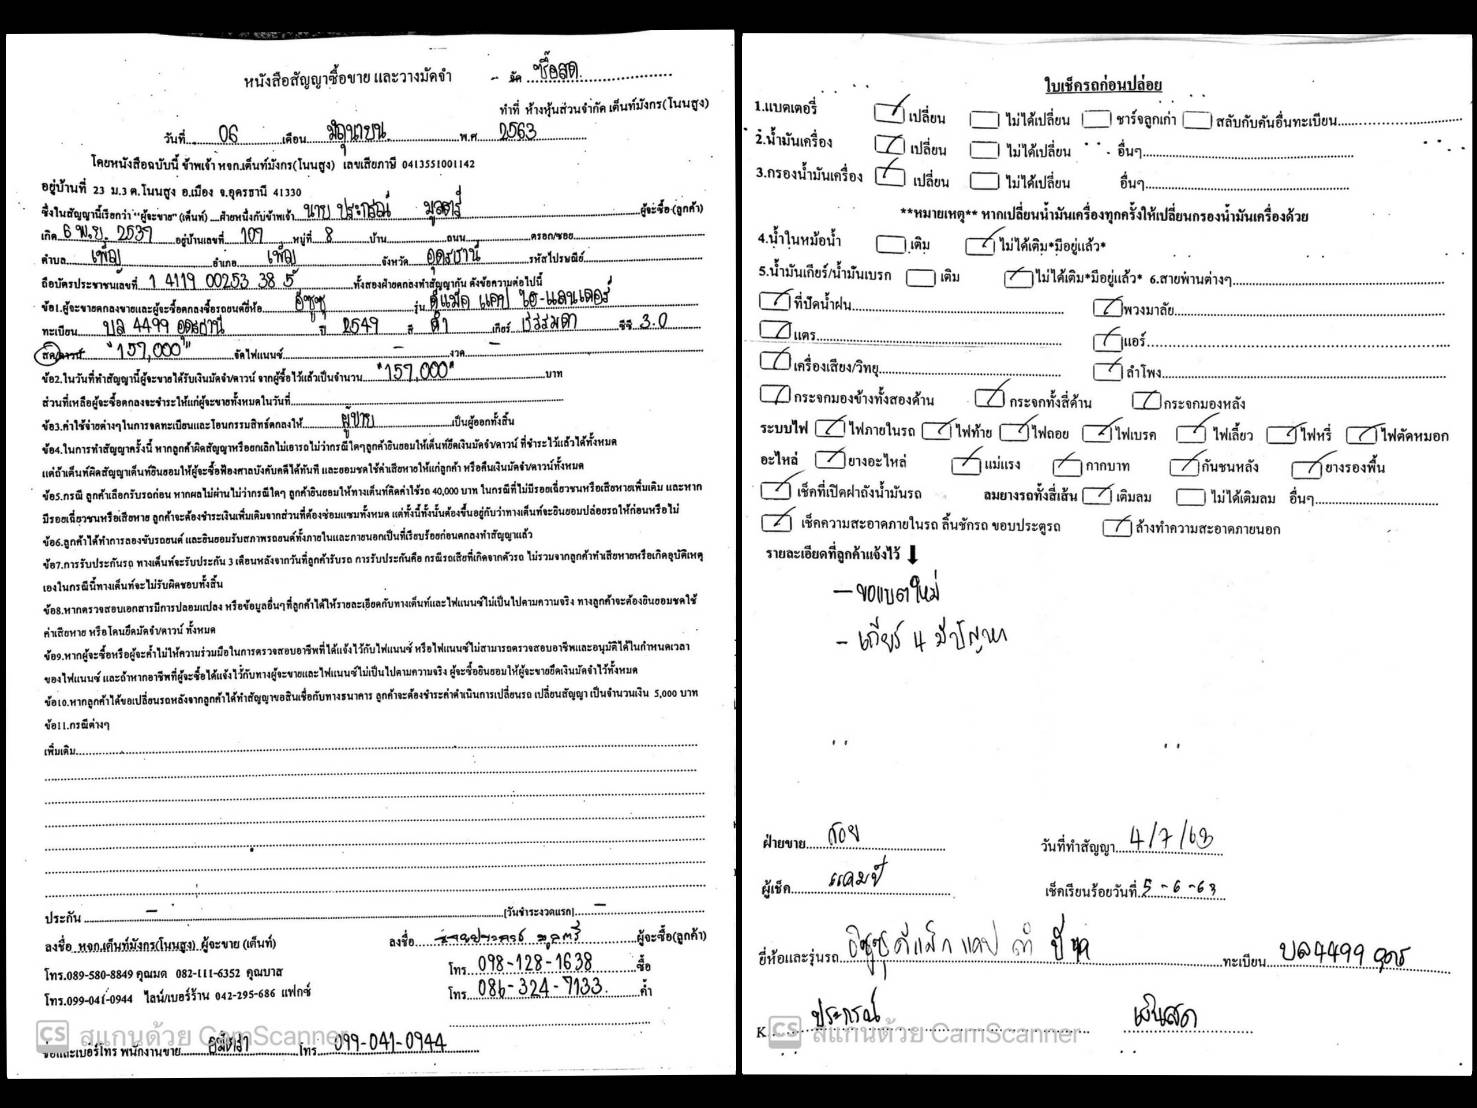 หนังสือสัญญาซื้อขาย และวางมัดจำ
- มัด ซื้อสด
ทำที่ ห้างหุ้นส่วนจำกัด เต็นท์มังกร(โนนสูง)
วันที่ 06 เดือน มิถุนายน พ.ศ 2563
โดยหนังสือฉบับนี้ ข้าพเจ้า หจก.เต็นท์มังกร(โนนสูง) เลขเสียภาษี 0413551001142
อยู่บ้านที่ 23 ม.3 ต.โนนสูง อ.เมือง จ.อุดรธานี 41330
ซึ่งในสัญญานี้เรียกว่า "ผู้จะขาย" (เต็นท์) ฝ่ายหนึ่งกับข้าพเจ้า นาย ประกรณ์ มูลตรี ผู้จะซื้อ (ลูกค้า)
เกิด 6 พ.ย. 2537 อยู่บ้านเลขที่ 107 หมู่ที่ 8 บ้าน ถนน ตรอก/ซอย
ตำบล เพ็ญ อำเภอ เพ็ญ จังหวัด อุดรธานี รหัสไปรษณีย์
ถือบัตรประชาชนเลขที่ 1 4119 00253 38 5 ทั้งสองฝ่ายตกลงทำสัญญากัน ดังข้อความต่อไปนี้
ข้อ1.ผู้จะขายตกลงขายและผู้จะซื้อตกลงซื้อรถยนต์ยี่ห้อ อีซูซุ รุ่น ดีแม็ค แคป ไฮ-แลนเดอร์
ทะเบียน บล 4499 อุดรธานี ปี 2549 สี ดำ เกียร์ ธรรมดา ซีซี 3.0
สด/ดาวน์ "157,000" จัดไฟแนนซ์ - งวด -
ข้อ2.ในวันที่ทำสัญญานี้ผู้จะขายได้รับเงินมัดจำ/ดาวน์ จากผู้ซื้อไว้แล้วเป็นจำนวน "157,000" บาท
ส่วนที่เหลือผู้จะซื้อตกลงจะชำระให้แก่ผู้จะขายทั้งหมดในวันที่
ข้อ3.ค่าใช้จ่ายต่างๆในการจดทะเบียนและโอนกรรมสิทธ์ตกลงให้ ผู้ขาย เป็นผู้ออกทั้งสิ้น
ข้อ4.ในการทำสัญญาครั้งนี้ หากลูกค้าผิดสัญญาหรือยกเลิกไม่เอารถไม่ว่ากรณีใดๆลูกค้ายินยอมให้เต็นท์ยึดเงินมัดจำ/ดาวน์ ที่ชำระไว้แล้วได้ทั้งหมด
แต่ถ้าเต็นท์ผิดสัญญาเต็นท์ยินยอมให้ผู้จะซื้อฟ้องศาลบังคับคดีได้ทันที และยอมชดใช้ค่าเสียหายให้แก่ลูกค้า หรือคืนเงินมัดจำ/ดาวน์ทั้งหมด
ข้อ5.กรณี ลูกค้าเลือกรับรถก่อน หากผลไม่ผ่านไม่ว่ากรณีใดๆ ลูกค้ายินยอมให้ทางเต็นท์คิดค่าใช้รถ 40,000 บาท ในกรณีที่ไม่มีรอยเฉี่ยวชนหรือเสียหายเพิ่มเติม และหาก
มีรอยเฉี่ยวชนหรือเสียหาย ลูกค้าจะต้องชำระเงินเพิ่มเติมจากส่วนที่ต้องซ่อมแซมทั้งหมด แต่ทั้งนี้ทั้งนั้นต้องขึ้นอยู่กับว่าทางเต็นท์จะยินยอมปล่อยรถให้ก่อนหรือไม่
ข้อ6.ลูกค้าได้ทำการลองขับรถยนต์ และยินยอมรับสภาพรถยนต์ทั้งภายในและภายนอกเป็นที่เรียบร้อยก่อนตกลงทำสัญญาแล้ว
ข้อ7.การรับประกันรถ ทางเต็นท์จะรับประกัน 3 เดือนหลังจากวันที่ลูกค้ารับรถ การรับประกันคือ กรณีรถเสียที่เกิดจากตัวรถ ไม่รวมจากลูกค้าทำเสียหายหรือเกิดอุบัติเหตุ
เองในกรณีนี้ทางเต็นท์จะไม่รับผิดชอบทั้งสิ้น
ข้อ8.หากตรวจสอบเอกสารมีการปลอมแปลง หรือข้อมูลอื่นๆที่ลูกค้าได้ให้รายละเอียดกับทางเต็นท์และไฟแนนซ์ไม่เป็นไปตามความจริง ทางลูกค้าจะต้องยินยอมชดใช้
ค่าเสียหาย หรือโดนยึดมัดจำ/ดาวน์ ทั้งหมด
ข้อ9.หากผู้จะซื้อหรือผู้จะค้ำไม่ให้ความร่วมมือในการตรวจสอบอาชีพที่ได้แจ้งไว้กับไฟแนนซ์ หรือไฟแนนซ์ไม่สามารถตรวจสอบอาชีพและอนุมัติได้ในกำหนดเวลา
ของไฟแนนซ์ และถ้าหากอาชีพที่ผู้จะซื้อได้แจ้งไว้กับทางผู้จะขายและไฟแนนซ์ไม่เป็นไปตามความจริง ผู้จะซื้อยินยอมให้ผู้จะขายยึดเงินมัดจำไว้ทั้งหมด
ข้อ10.หากลูกค้าได้ขอเปลี่ยนรถหลังจากลูกค้าได้ทำสัญญาขอสินเชื่อกับทางธนาคาร ลูกค้าจะต้องชำระค่าดำเนินการเปลี่ยนรถ เปลี่ยนสัญญา เป็นจำนวนเงิน 5,000 บาท
ข้อ11.กรณีต่างๆ
เพิ่มเติม
ประกัน - (วันชำระงวดแรก) -
ลงชื่อ หจก.เต็นท์มังกร(โนนสูง) ผู้จะขาย (เต็นท์) ลงชื่อ นายประกรณ์ มูลตรี ผู้จะซื้อ(ลูกค้า)
โทร.089-580-8849 คุณมด 082-111-6352 คุณบาส โทร 098-128-1638 ซื้อ
โทร.099-041-0944 ไลน์/เบอร์ร้าน 042-295-686 แฟกซ์ โทร 086-324-7133 ค้ำ
CS สแกนด้วย CamScanner
ชื่อและเบอร์โทร พนักงานขาย โทร 099-041-0944
ใบเช็ครถก่อนปล่อย
1.แบตเตอรี่ เปลี่ยน ไม่ได้เปลี่ยน ชาร์จลูกเก่า สลับกับคันอื่นทะเบียน
2.น้ำมันเครื่อง เปลี่ยน ไม่ได้เปลี่ยน อื่นๆ
3.กรองน้ำมันเครื่อง เปลี่ยน ไม่ได้เปลี่ยน อื่นๆ
**หมายเหตุ** หากเปลี่ยนน้ำมันเครื่องทุกครั้งให้เปลี่ยนกรองน้ำมันเครื่องด้วย
4.น้ำในหม้อน้ำ เติม ไม่ได้เติม*มีอยู่แล้ว*
5.น้ำมันเกียร์/น้ำมันเบรก เติม ไม่ได้เติม*มีอยู่แล้ว* 6.สายพ่านต่างๆ
ที่ปัดน้ำฝน พวงมาลัย
แตร แอร์
เครื่องเสียง/วิทยุ ลำโพง
กระจกมองข้างทั้งสองด้าน กระจกทั้งสี่ด้าน กระจกมองหลัง
ระบบไฟ ไฟภายในรถ ไฟท้าย ไฟถอย ไฟเบรค ไฟเลี้ยว ไฟหรี่ ไฟตัดหมอก
อะไหล่ ยางอะไหล่ แม่แรง กากบาท กันชนหลัง ยางรองพื้น
เช็คที่เปิดฝาถังน้ำมันรถ ลมยางรถทั้งสี่เส้น เติมลม ไม่ได้เติมลม อื่นๆ
เช็คความสะอาดภายในรถ ลิ้นชักรถ ขอบประตูรถ ล้างทำความสะอาดภายนอก
รายละเอียดที่ลูกค้าแจ้งไว้
- ขอแบตใหม่
- เกียร์ 4 มีปัญหา
ฝ่ายขาย ก้อย วันที่ทำสัญญา 4/7/63
ผู้เช็ค แคมป์ เช็คเรียบร้อยวันที่ 5-6-63
ยี่ห้อและรุ่นรถ อีซูซุ ดีแม็ก แคป ดำ ทะเบียน บล4499 อุดร
K ประกรณ์ เงินสด
CS สแกนด้วย CamScanner